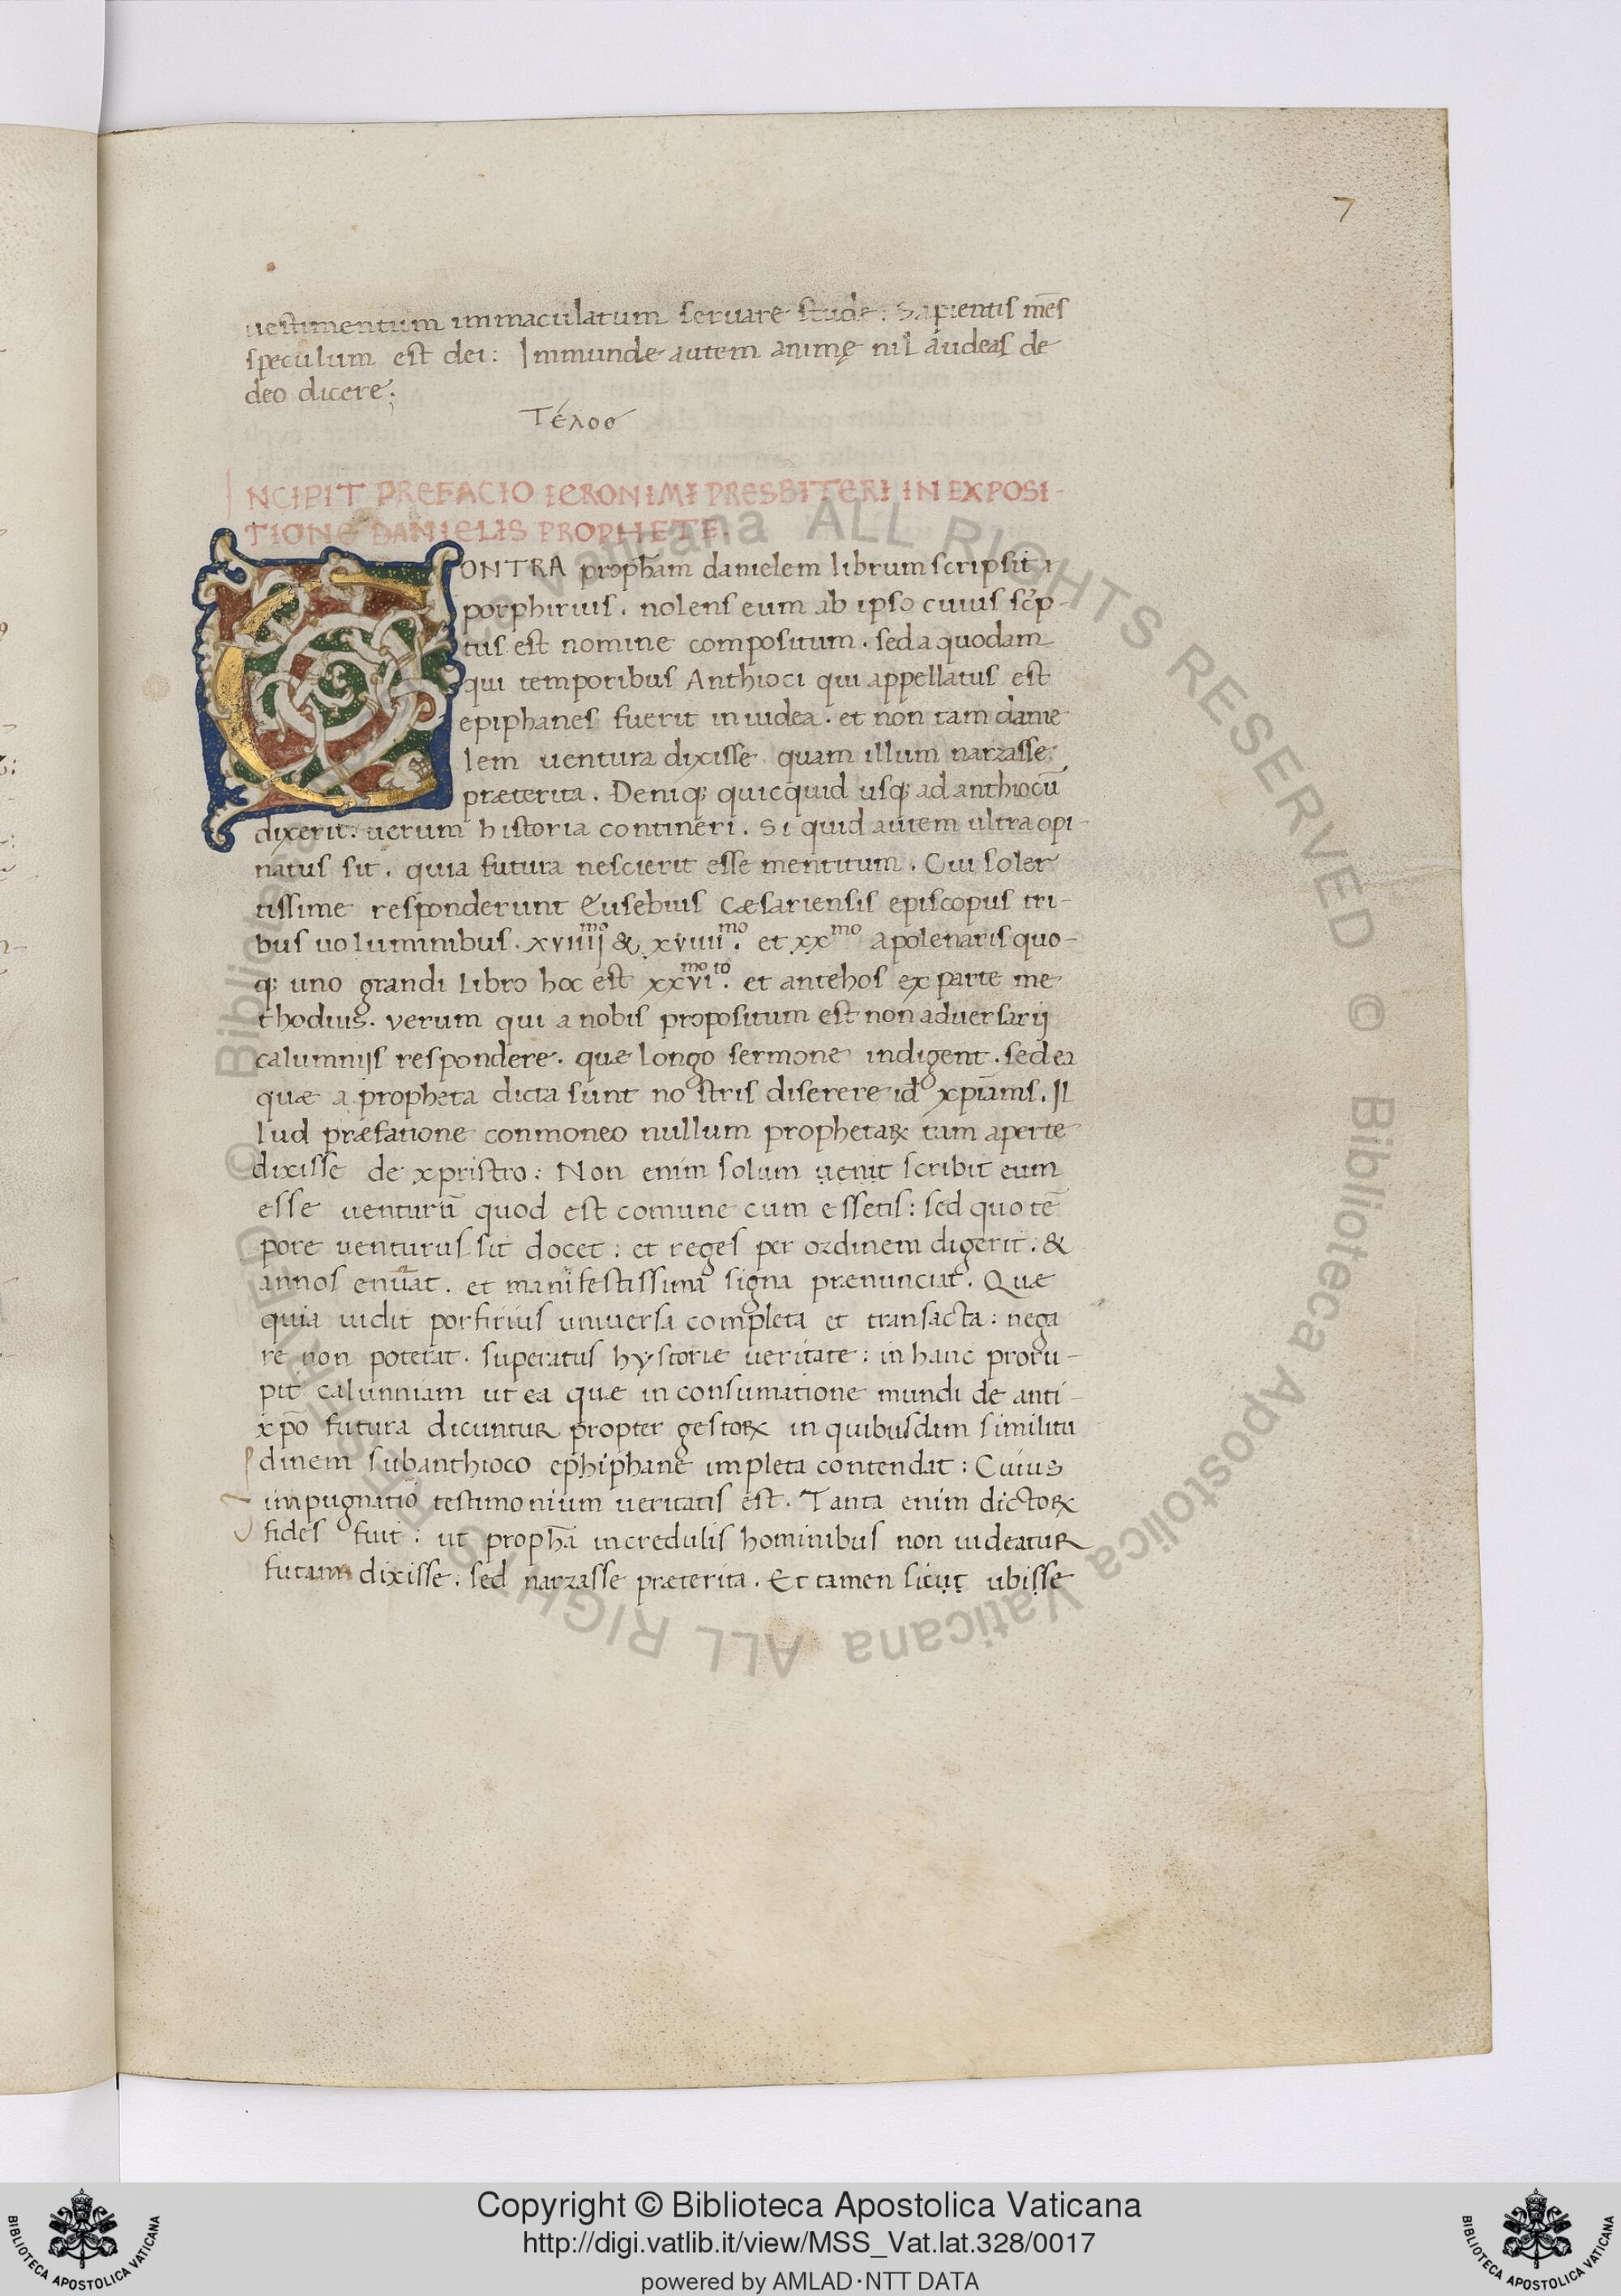 7
uestimentum immaculatum seruare stude: Sapientis m̄es
speculum est dei: Immunde autem animę nil audeas de
deo dicere;
Τέλοσ
INCIPIT PREFACIO IERONIMI PRESBITERI IN EXPOSI-
TIONE DANIELIS PROPHETE.
CONTRA proph̄am danielem librum scripsit
porphirius. nolens eum ab ipso cuius sc̄p-
tus est nomine compositum. sed a quodam
qui temporibus Anthioci qui appellatus est
epiphanes fuerit in iudea. et non tam danie
lem uentura dixisse quam illum narrasse
præterita. Deniq; quicquid usq; ad anthiocū
dixerit. uerum historia contineri. Si quid autem ultra opi-
natus sit. quia futura nescierit esse mentitum. Cui soler
tissime responderunt Eusebius Cæsariensis episcopus tri-
bus uoluminibus. xviiij mo & xviiii mo. et xx mo apolenaris quo-
q; uno grandi libro hoc est xxvi mo to. et ante hos ex parte me
thodius. verum qui a nobis propositum est non aduersarij
calumnijs respondere. quæ longo sermone indigent. sed ea
quæ a propheta dicta sunt nostris diserere id xp̄ianis. Il
lud præfatione conmoneo nullum prophetaꝝ tam aperte
dixisse de xpristro: Non enim solum uenit scribit eum
esse uenturū quod est comune cum essetis: sed quo tē
pore uenturus sit docet: et reges per ordinem digerit: &
annos enūat. et manifestissima signa prænunciat. Quæ
quia uidit porfirius uniuersa completa et transacta: nega
re non poterat. superatus hystoriæ ueritate: in hanc proru-
pit calunniam ut ea quæ in consumatione mundi de anti-
xp̄o futura dicuntur propter gestoꝝ in quibusdam similitu
dinem sub anthioco ephiphane impleta contendat: Cuius
impugnatio testimonium ueritatis est. Tanta enim dictoꝝ
fides fuit: ut proph̄a incredulis hominibus non uideatur
futam dixisse. sed narrasse præterita. Et tamen sicut ubisse
© Biblioteca Apostolica Vaticana ALL RIGHTS RESERVED © Biblioteca Apostolica Vaticana ALL RIGHTS RESERVED
Copyright © Biblioteca Apostolica Vaticana
http://digi.vatlib.it/view/MSS_Vat.lat.328/0017
powered by AMLAD·NTT DATA
BIBLIOTECA APOSTOLICA VATICANA
BIBLIOTECA APOSTOLICA VATICANA